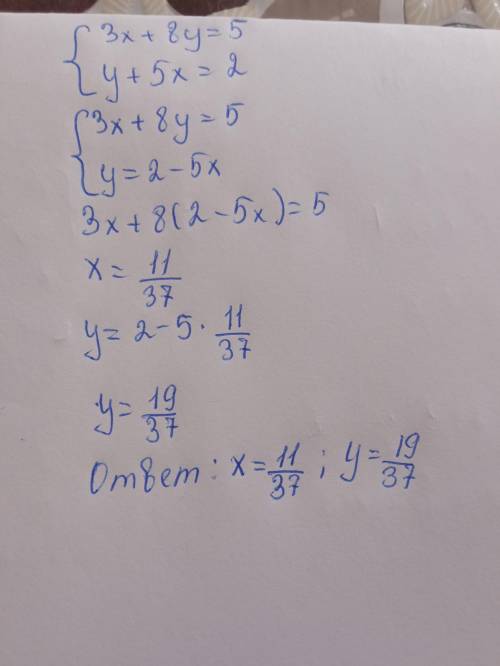 3x + 8y = 5
y + 5x = 2
3x + 8y = 5
y = 2 - 5x
3x + 8(2 - 5x) = 5
x = 11/37
y = 2 - 5 · 11/37
y = 19/37
Ответ: x = 11/37 ; y = 19/37